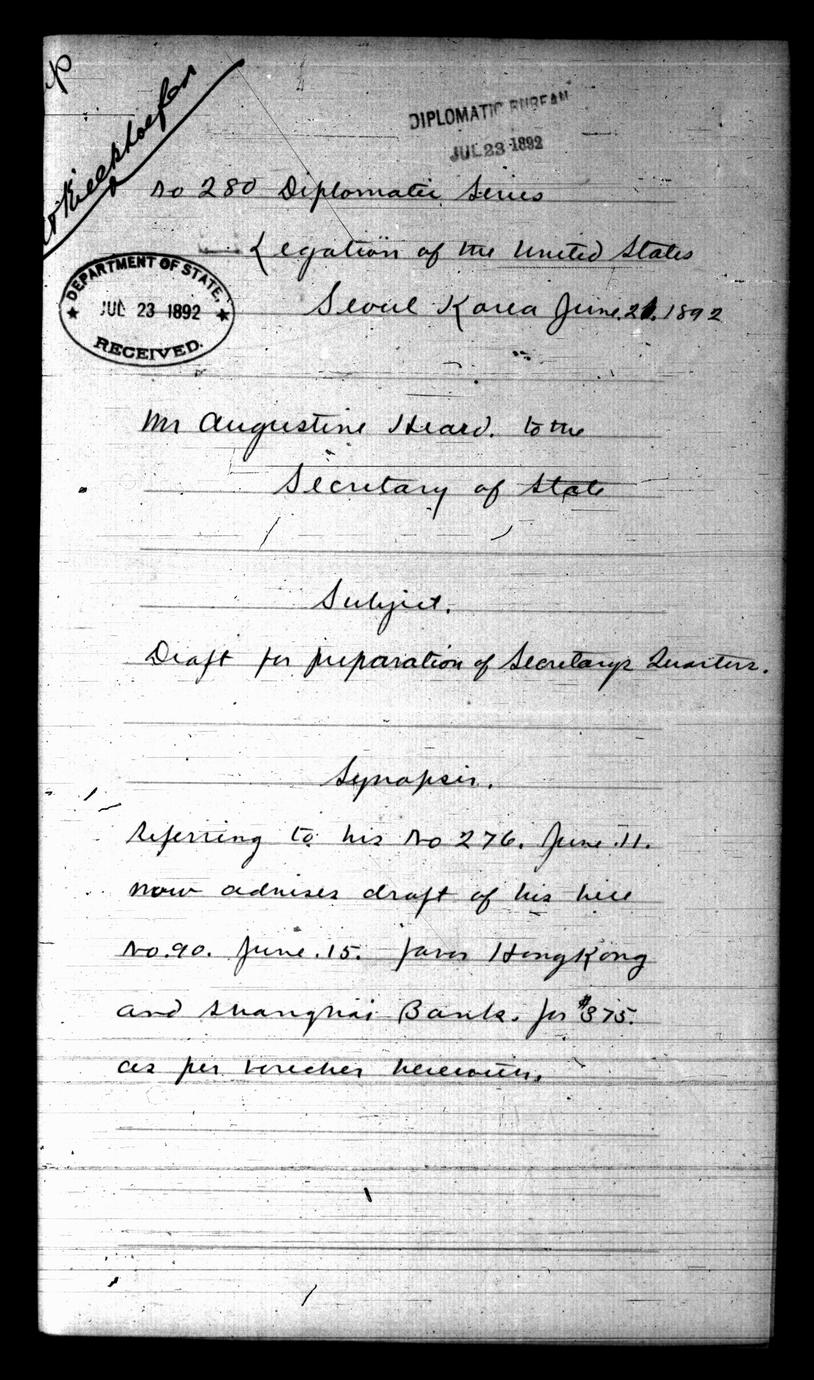 DIPLOMATIC BUREAU
JUL 23 1892
No 280 Diplomatic Series
Legation of the United States
DEPARTMENT OF STATE,
JUL 23 1892
RECEIVED.
Seoul Korea June. 21. 1892
Mr Augustine Heard. to the
Secretary of State
Subject.
Draft for preparation of Secretarys Quarters.
Synopsis.
Referring to his No 276. June. 11.
now advises draft of his bill
No. 90. June. 15. favor HongKong
and Shanghai Bank. for $375.
as per voucher herewith.